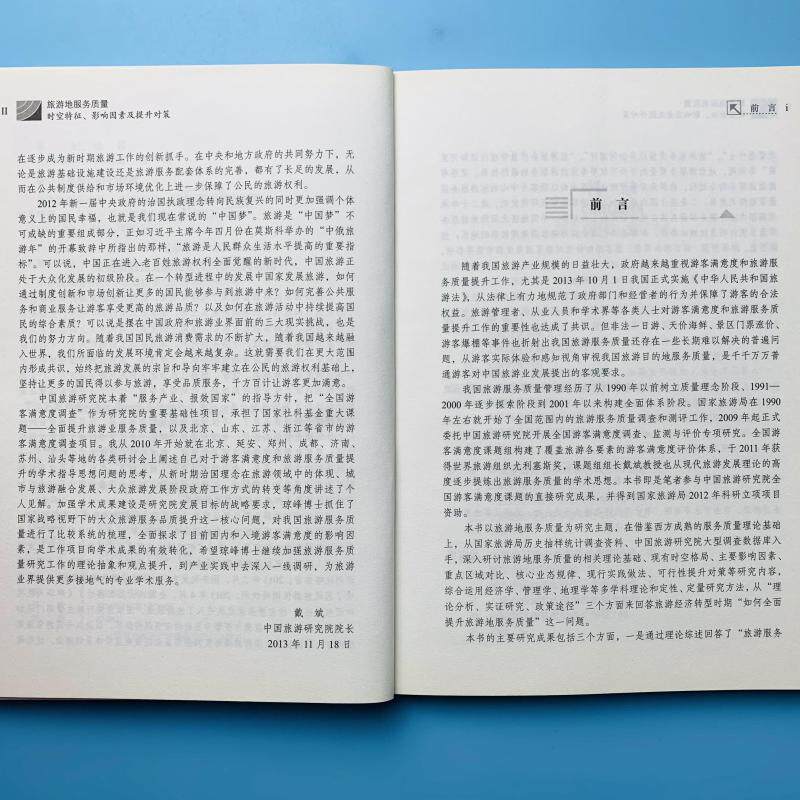 II
旅游地服务质量
时空特征、影响因素及提升对策
在逐步成为新时期旅游工作的创新抓手。在中央和地方政府的共同努力下，无
论是旅游基础设施建设还是旅游服务配套体系的完善，都有了长足的发展，从
而在公共制度供给和市场环境优化上进一步保障了公民的旅游权利。
2012年新一届中央政府的治国执政理念转向民族复兴的同时更加强调个体
意义上的国民幸福，也就是我们现在常说的“中国梦”。旅游是“中国梦”不
可或缺的重要组成部分，正如习近平主席今年四月份在莫斯科举办的“中俄旅
游年”的开幕致辞中所指出的那样，“旅游是人民群众生活水平提高的重要指
标”。可以说，中国正在进入老百姓旅游权利全面觉醒的新时代，中国旅游正
处于大众化发展的初级阶段。在一个转型进程中的发展中国家发展旅游，如何
通过制度创新和市场创新让更多的国民能够参与到旅游中来？如何完善公共服
务和商业服务让游客享受更高的旅游品质？以及如何在旅游活动中持续提高国
民的综合素质？可以说是摆在中国政府和旅游业界面前的三大现实挑战，也是
我们的努力方向。随着我国国民旅游消费需求的不断扩大，随着我国越来越融
入世界，我们所面临的发展环境肯定会越来越复杂。这就需要我们在更大范围
内形成共识，始终把旅游发展的宗旨和导向牢牢建立在公民的旅游权利基础上，
坚持让更多的国民得以参与旅游，享受品质服务，千方百计让游客更加满意。
中国旅游研究院本着“服务产业、报效国家”的指导方针，把“全国游
客满意度调查”作为研究院的重要基础性项目，承担了国家社科基金重大课
题——全面提升旅游业服务质量，以及北京、山东、江苏、浙江等省市的游
客满意度调查项目。我从2010年开始就在北京、延安、郑州、成都、济南、
苏州、汕头等地的各类研讨会上阐述自己对于游客满意度和旅游服务质量提
升的学术指导思想问题的思考，从新时期治国理念在旅游领域中的体现、城
市与旅游融合发展、大众旅游发展阶段政府工作方式的转变等角度讲述了个
人见解。加强学术成果建设是研究院发展目标的战略要求，琼峰博士抓住了
国家战略视野下的大众旅游服务品质提升这一核心问题，对我国旅游服务质
量进行了比较系统的梳理，全面探求了目前国内和入境游客满意度的影响因
素，是工作项目向学术成果的有效转化，希望琼峰博士继续加强旅游服务质
量研究工作的理论抽象和观点提升，到产业实践中去深入一线调研，为旅游
业界提供更多接地气的专业学术服务。
戴 斌
中国旅游研究院院长
2013年11月18日
前 言 i
前 言
随着我国旅游产业规模的日益壮大，政府越来越重视游客满意度和旅游服
务质量提升工作，尤其是2013年10月1日我国正式实施《中华人民共和国旅
游法》，从法律上有力地规范了政府部门和经营者的行为并保障了游客的合法
权益。旅游管理者、从业人员和学术界等各类人士对游客满意度和旅游服务质
量提升工作的重要性也达成了共识。但非法一日游、天价海鲜、景区门票涨价、
游客爆棚等事件也折射出我国旅游服务质量还存在一些长期难以解决的普遍问
题，从游客实际体验和感知视角审视我国旅游目的地服务质量，是千千万万普
通游客对中国旅游业发展提出的客观要求。
我国旅游服务质量管理经历了从1990年以前树立质量理念阶段、1991—
2000年逐步探索阶段到2001年以来构建全面体系阶段。国家旅游局在1990
年左右就开始了全国范围内的旅游服务质量调查和测评工作，2009年起正式
委托中国旅游研究院开展全国游客满意度调查、监测与评价专项研究。全国游
客满意度课题组构建了覆盖旅游各要素的游客满意度评价体系，于2011年获
得世界旅游组织尤利塞斯奖，课题组组长戴斌教授也从现代旅游发展理论的高
度逐步提炼出旅游服务质量的学术思想。本书即是笔者参与中国旅游研究院全
国游客满意度课题的直接研究成果，并得到国家旅游局2012年科研立项项目
资助。
本书以旅游地服务质量为研究主题，在借鉴西方成熟的服务质量理论基础
上，从国家旅游局历史抽样统计调查资料、中国旅游研究院大型调查数据库入
手，深入研讨旅游地服务质量的相关理论基础、现有时空格局、主要影响因素、
重点区域对比、核心业态规律、现行实践做法、可行性提升对策等研究内容，
综合运用经济学、管理学、地理学等多学科理论和定性、定量研究方法，从“理
论分析、实证研究、政策途径”三个方面来回答旅游经济转型时期“如何全面
提升旅游地服务质量”这一问题。
本书的主要研究成果包括三个方面，一是通过理论综述回答了“旅游服务